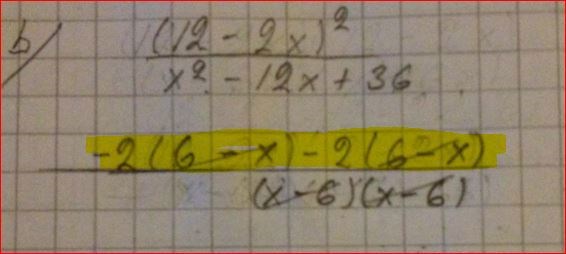 b/ (12 - 2x)²
x² - 12x + 36
-2(6-x)-2(6-x)
(x-6)(x-6)